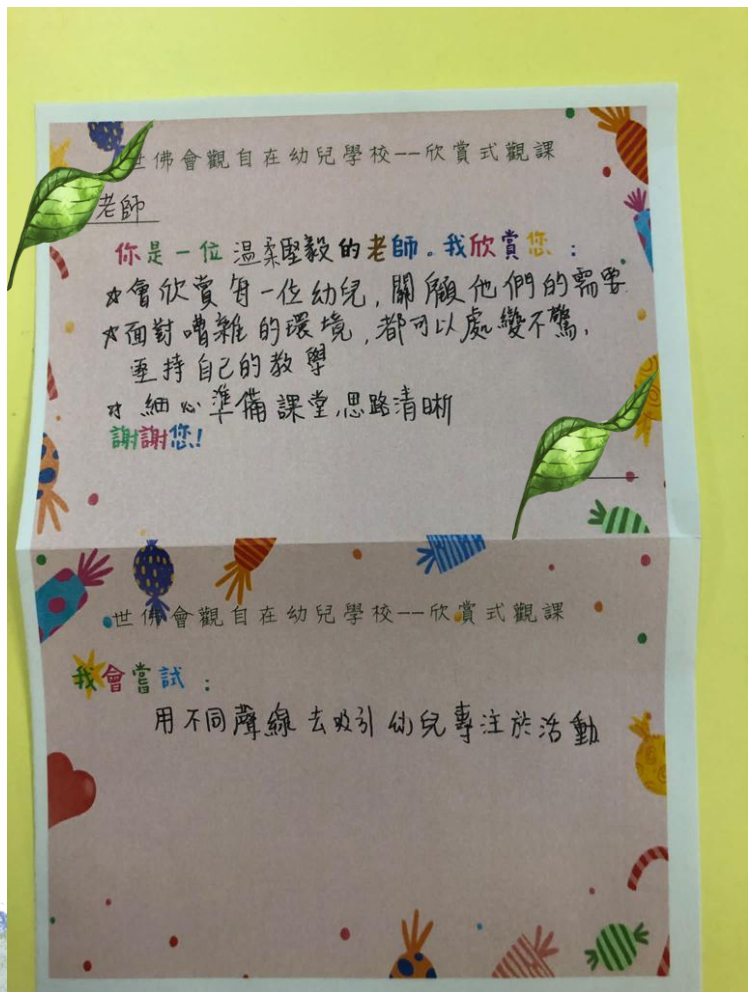 世佛會觀自在幼兒學校--欣賞式觀課
老師
你是一位 温柔堅毅 的老師。我欣賞您：
☆會欣賞每一位幼兒，關顧他們的需要
☆面對嘈雜的環境，都可以處變不驚，
堅持自己的教學
☆細心準備課堂，思路清晰
謝謝您!
世佛會觀自在幼兒學校--欣賞式觀課
我會嘗試：
用不同聲線去吸引幼兒專注於活動